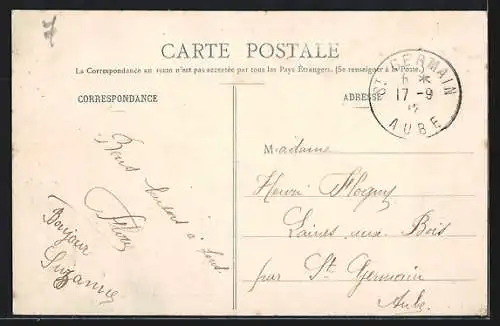 7
CARTE POSTALE
La Correspondance au recto n'est pas acceptée par tous les Pays Étrangers. (Se renseigner à la Poste.)
CORRESPONDANCE
ADRESSE
ST GERMAIN
6 *
17 - 9
12
AUBE
Bons baisers à tous.
Bonjour
Suzanne
Madame
Henri
Laines aux Bois
par St Germain
Aube